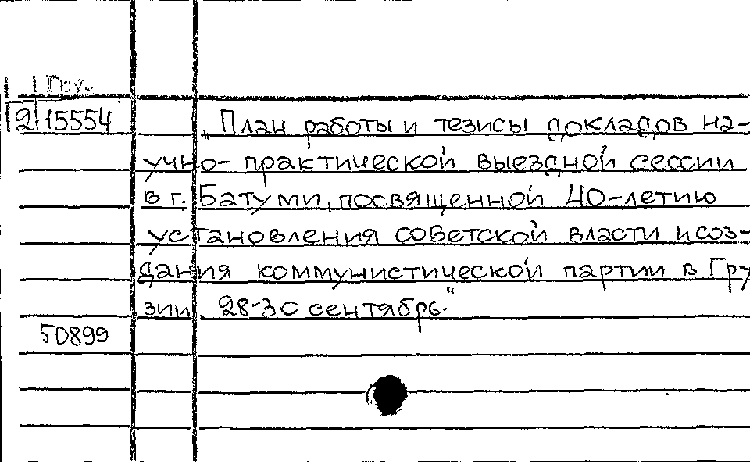 2 15554
„План работы и тезисы докладов на-
учно-практической выездной сессии
в г. Батуми, посвященной 40-летию
установления советской власти и соз-
дания коммунистической партии в Гру-
зии. 28-30 сентябрь."
50899